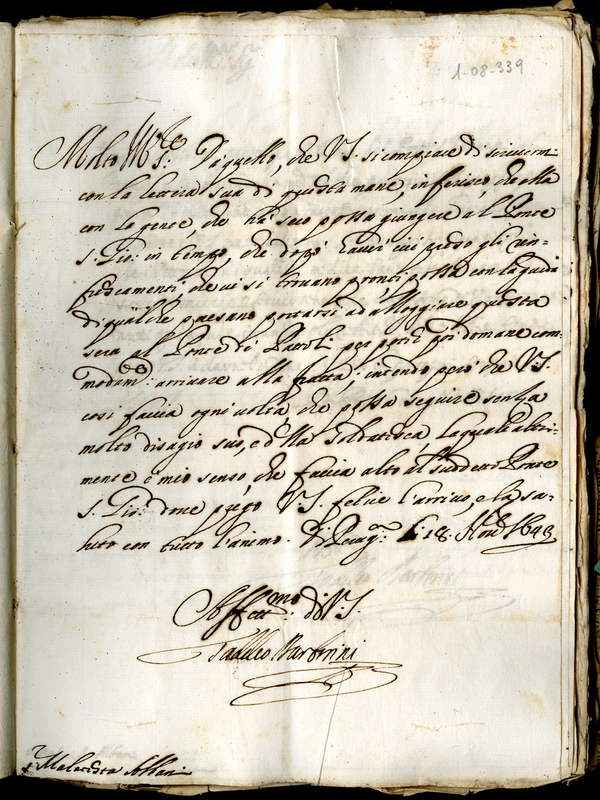 1-08-339
Molto Ill.re S.r: Di quello, che V.S. si compiace di scrivermi
con la lettera sua di questa mane, inferisco, che ella
con le gente, che hà seco possa giungere al Ponte
S. Gio: in tempo, che dopò haver ivi preso gli rin-
frescamenti che vi si trovano pronti possa con la guida
di qualche paesano portarsi ad alloggiare questa
sera al Ponte di Pattoli per poter poi domane com-
modam.te arrivare alla fratta; intendo però che V.S.
così faccia ogni volta che possa seguire senza
molto disagio suo, e d'lla soldatesca, la quale altri-
mente è mio senso, che faccia alto al suddetto Ponte
S. Gio: dove prego V.S. felice l'arrivo, e la sa-
luto con tutto l'animo. Di li 18. Nov 1643
Aff.mo di V.S.
Taddeo Barberini
Malatesta Albani